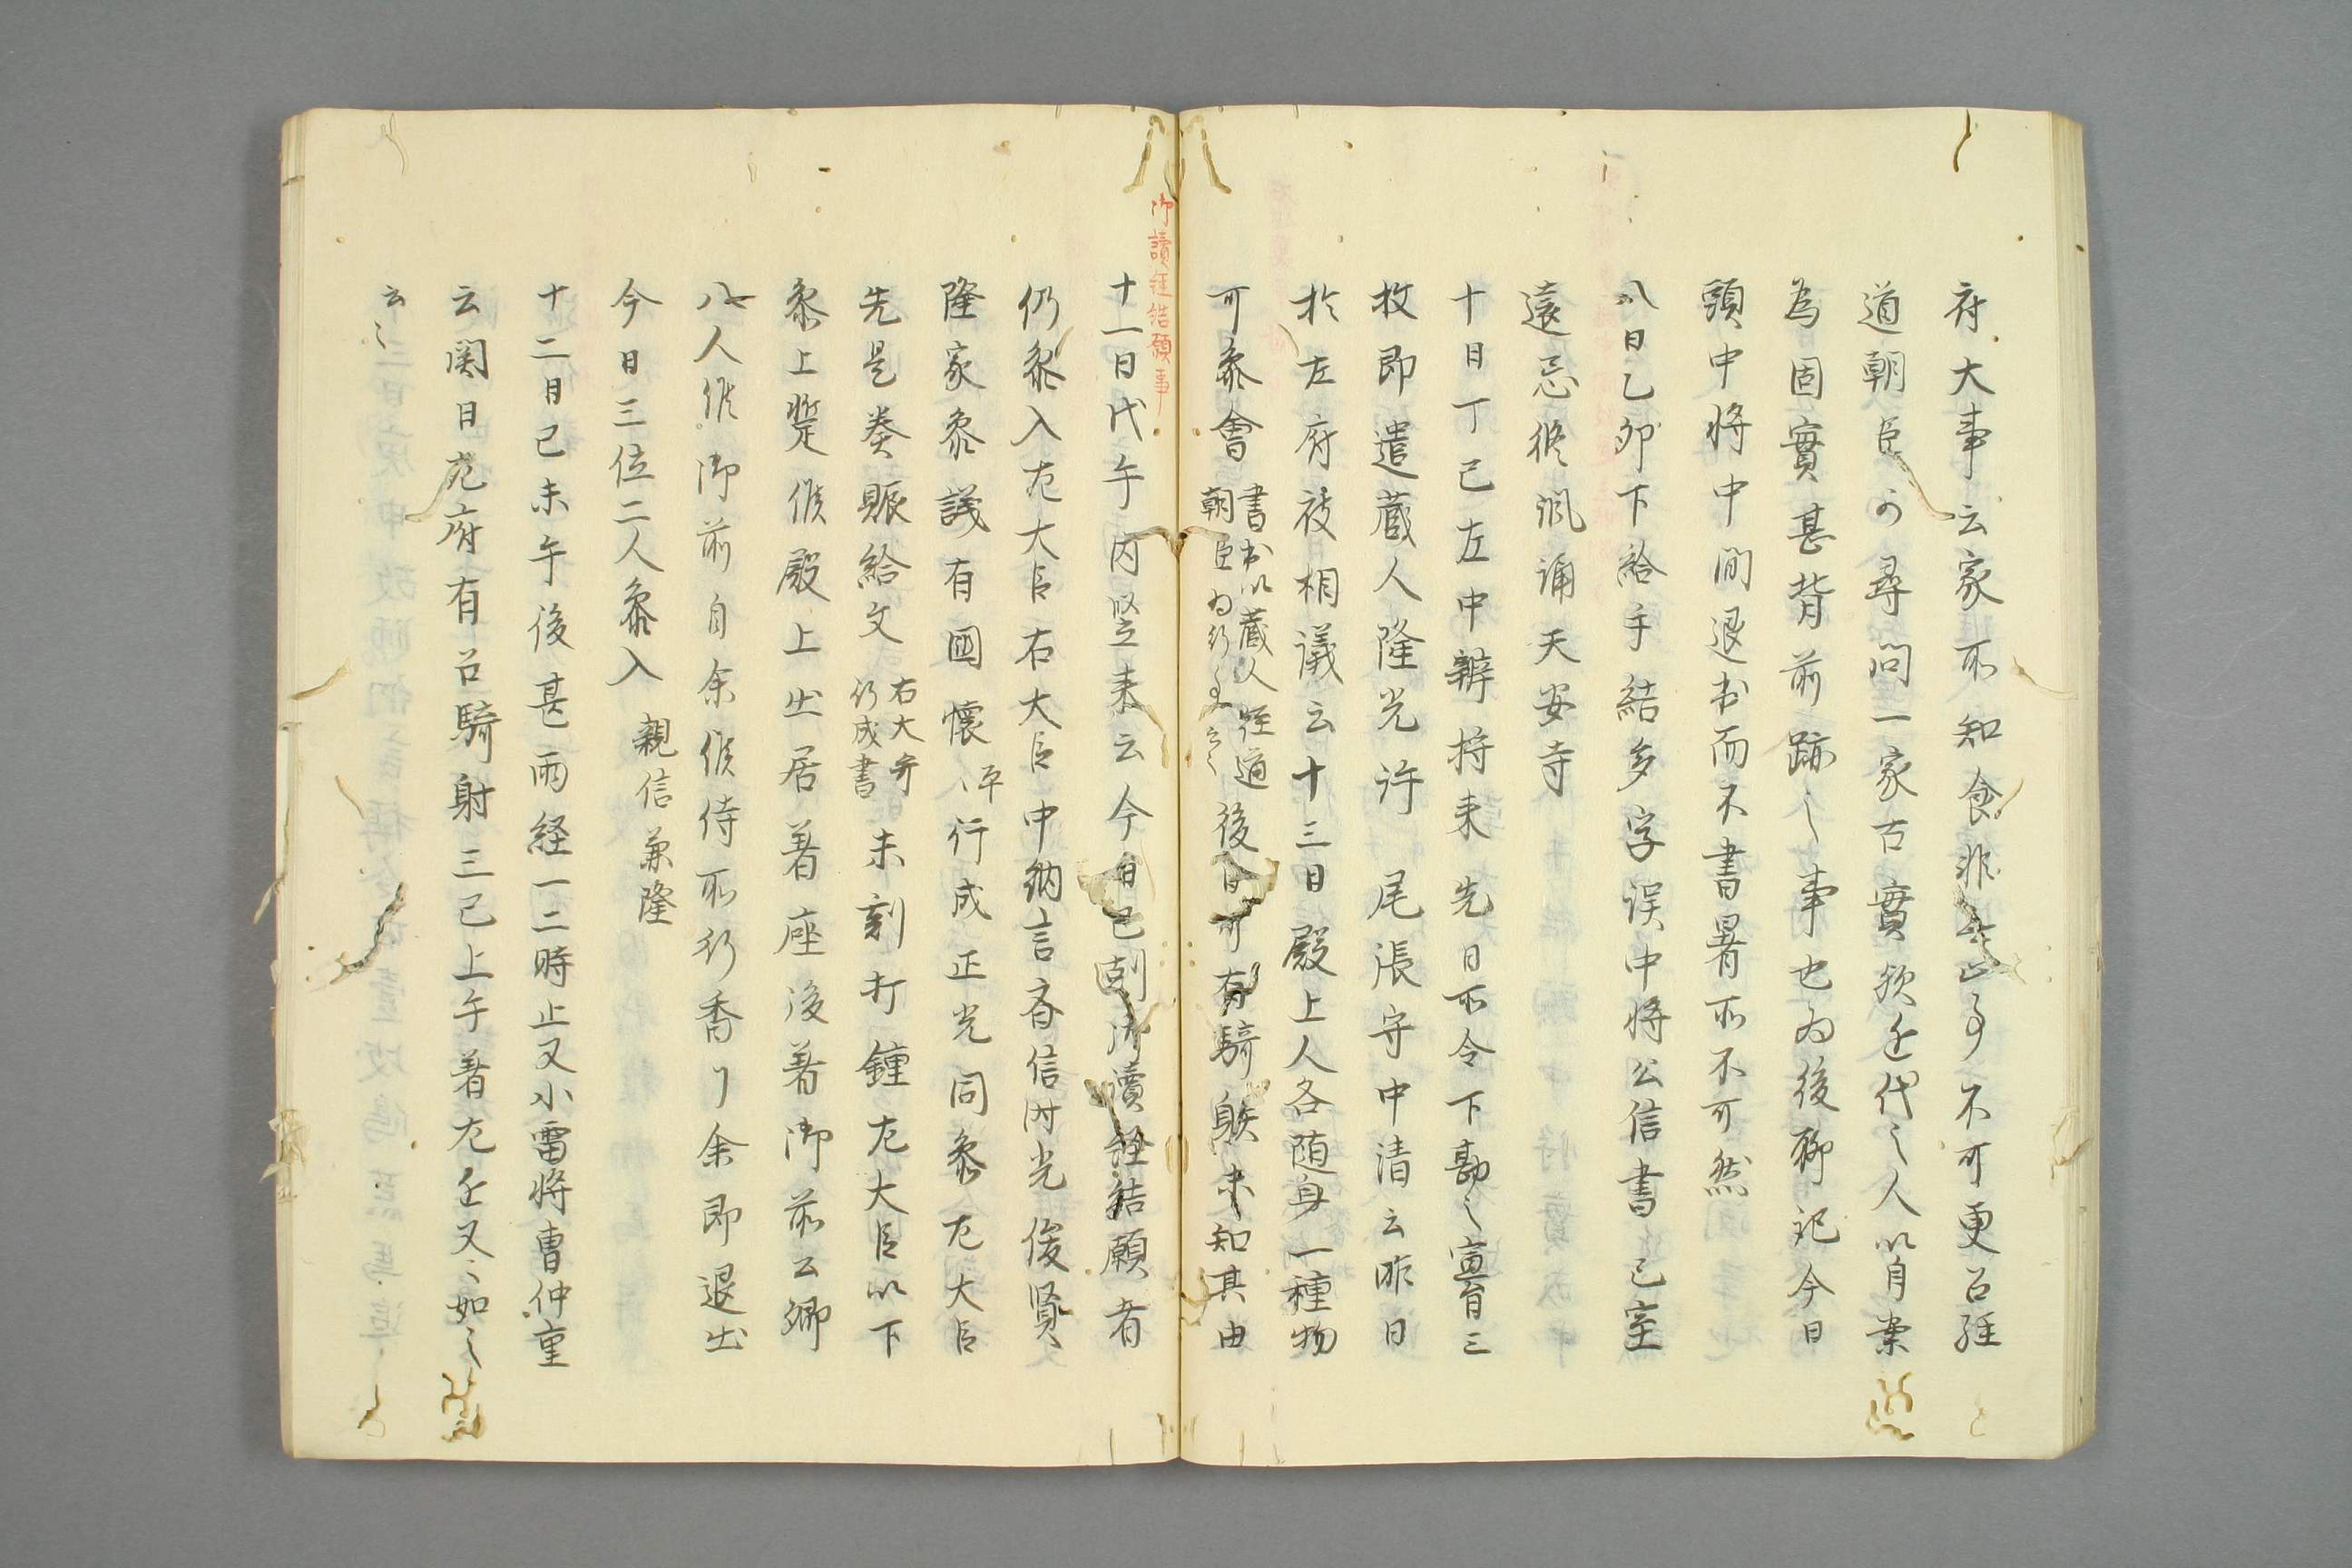 府大事云家所知食非無此事不可更召経
道朝臣可尋問一家古實欤近代之人以自案
為固實甚背前跡之事也為後聊記今日
頭中将中間退出而不書暑所不可然
八日乙卯下給手結多字誤中将公信書已室
遠忌修諷誦天安寺
十日丁巳左中辨持来先日所令下勘之宣旨三
枚即遣蔵人隆光许尾張守中清云昨日
於左府被相議云十三日殿上人各随身一種物
可参會書出以蔵人経通朝臣为行事云々後日可有騎射未知其由
御讀経結願事
十一日代午内竪来云今日巳剋御讀経結願者
仍参入左大臣右大臣中納言斉信时光俊賢
隆家参議有國懐平行成正光同参左大臣
先是奏賑給文右大弁行成書未刻打鍾左大臣以下
参上蹔候殿上出居着座後着御前公卿
八人候御前自余候侍所行香了余即退出
今日三位二人参入親信兼隆
十二日己未午後甚雨経一二時止又小雷将曹仲重
云関日左府有召騎射三已上午着左近又々如之
云々